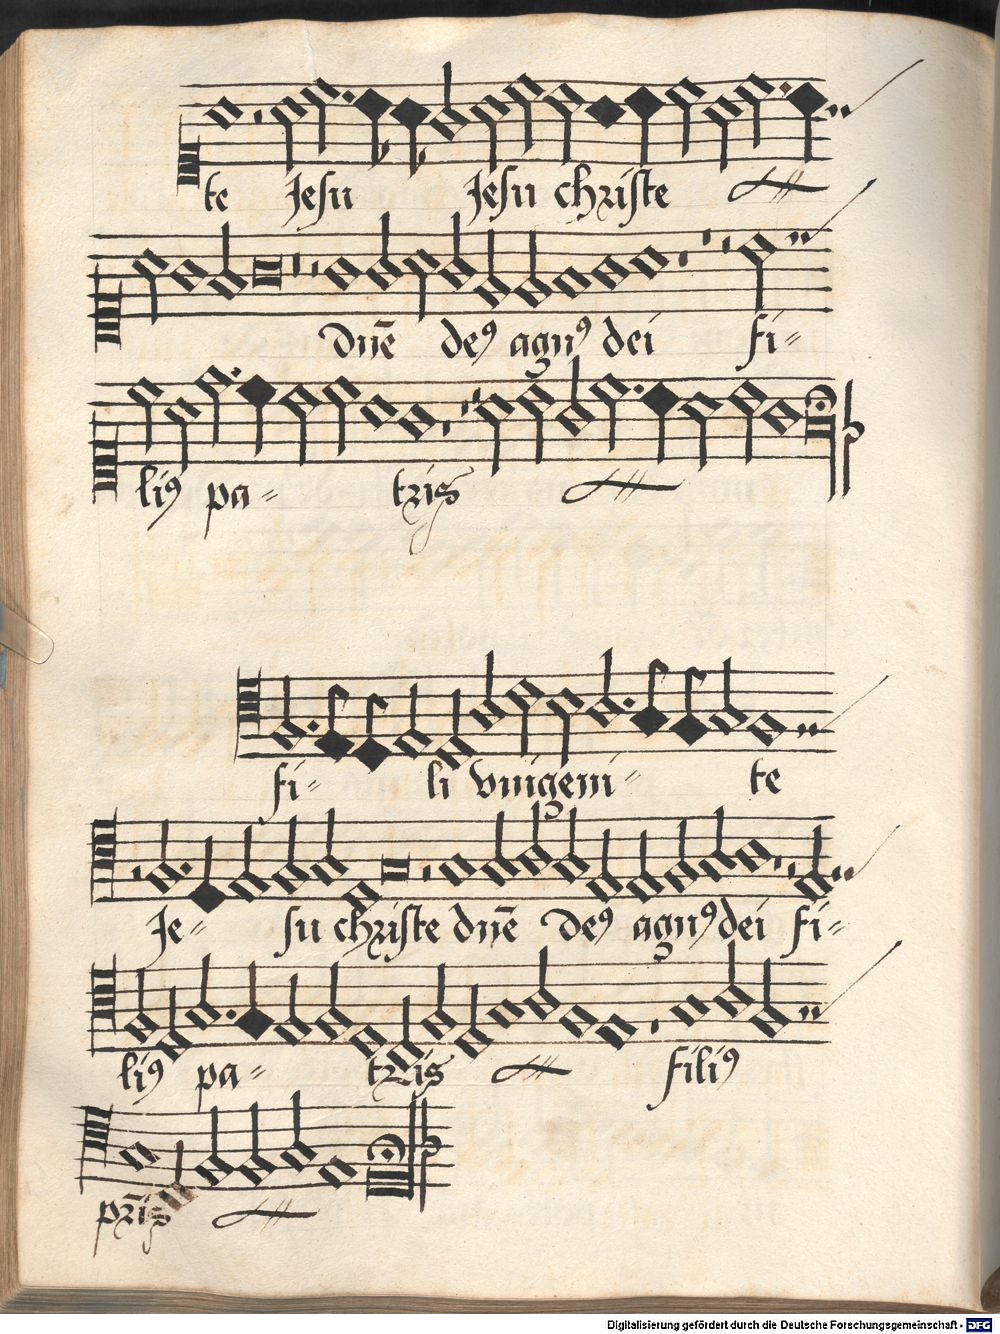 te Jesu Jesu christe
Dn̄e deꝰ agnꝰ dei fi-
liꝰ pa- tris
fi- li vnigeni- te
Je- su christe dn̄e deꝰ agnꝰ dei fi-
liꝰ pa- tris filiꝰ
pr̄is
Digitalisierung gefördert durch die Deutsche Forschungsgemeinschaft - DFG